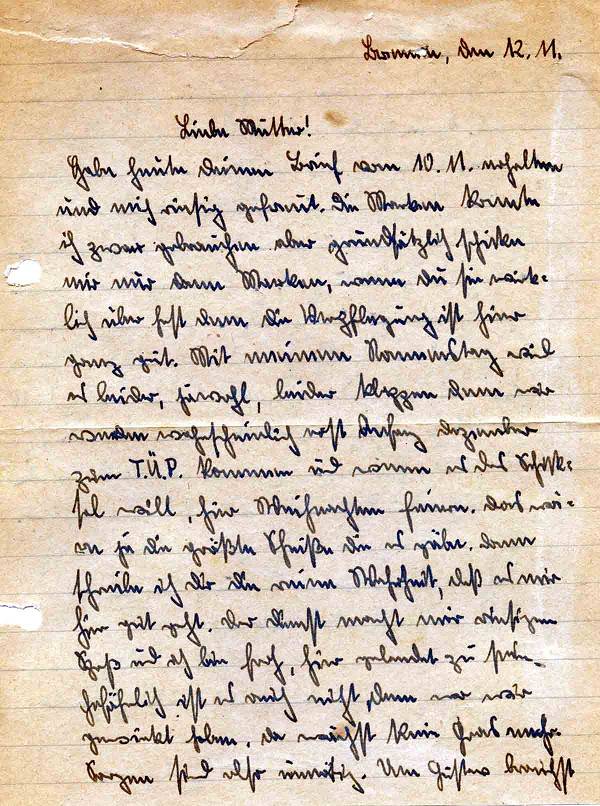 Bremen, den 12.11.
Liebe Mutter!
Habe heute deinen Brief vom 10.11. erhalten
und mich riesig gefreut. Die Marken konnte
ich zwar gebrauchen aber grundsätzlich schicke
mir nur dann Marken, wenn du sie wirk-
lich über hast denn die Verpflegung ist hier
ganz gut. Mit meinem Namenstag wird
es leider, jawohl, leider klappen denn wir
werden wahrscheinlich erst Anfang Dezember
zum T.Ü.P. kommen und wenn es das Schick-
sal will, hier Weihnachten feiern. Das wä-
re ja die größte Scheiße die es gäbe. Denn
schreibe ich dir die reine Wahrheit, daß es mir
hier gut geht. Der Dienst macht mir riesigen
Spaß und ich bin froh, hier gelandet zu sein.
Gefährlich ist es auch nicht, denn wo wir
gewirkt haben, da wächst kein Gras mehr.
Sorgen sind also unnötig. Um Gustav brauchst